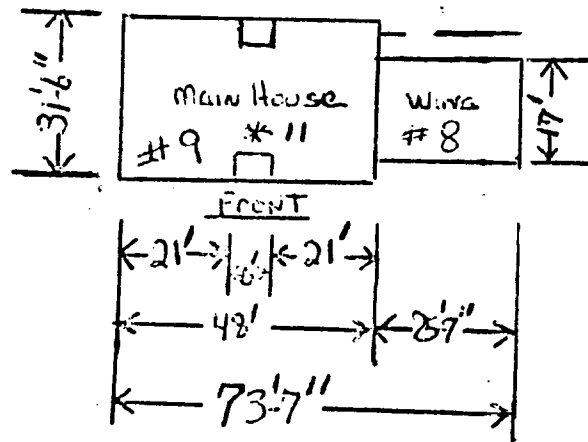 31'-6"
Main House
#9 * 11
Wing
#8
17'
FRONT
21' 6' 21'
48' 25'7"
73'-7"